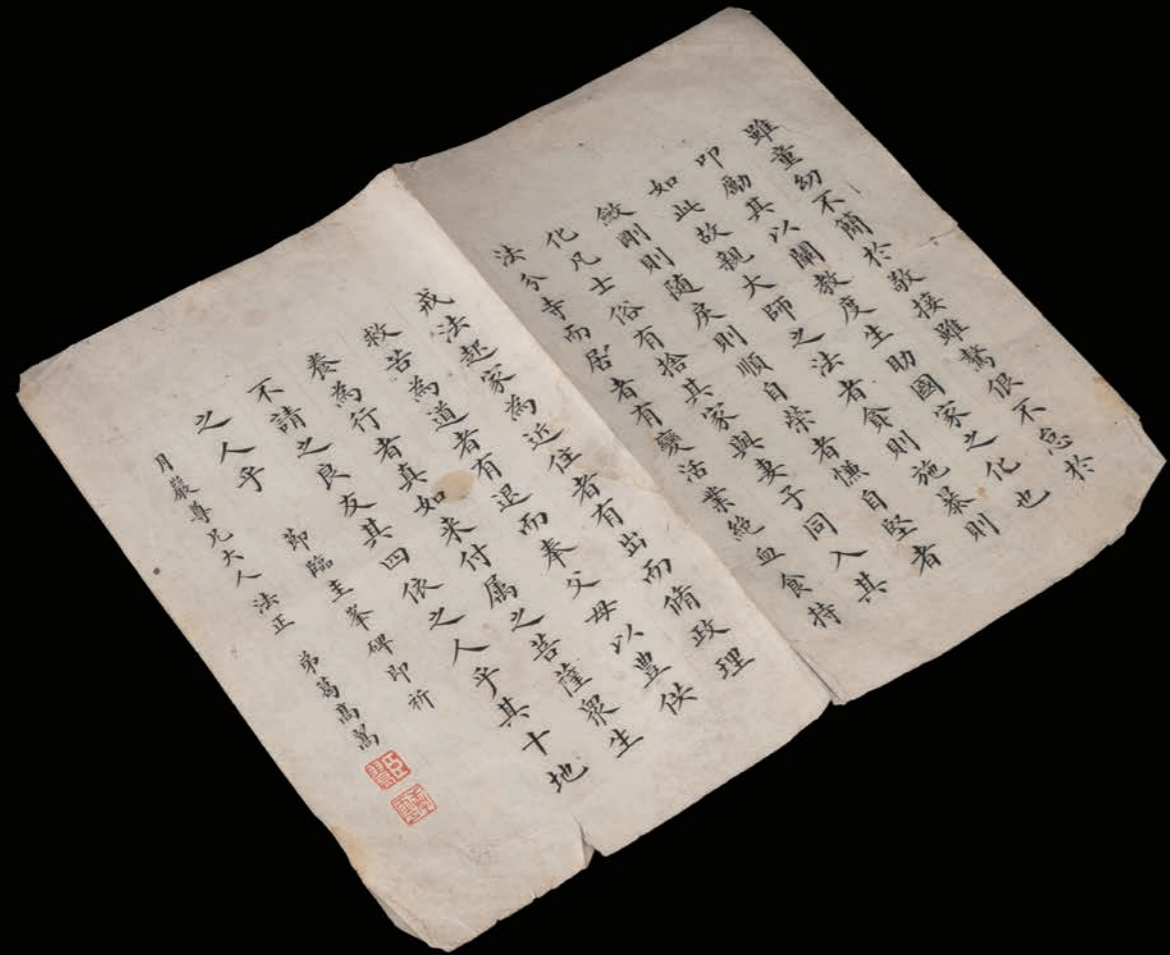 雖童幼不簡於敬接雖驁佷不怠於
叩勵其以闡教度生助國家之化也
如此故親大師之法者貧則施暴則
斂剛則随戾則順自榮者慊自堅者
化凡士俗有捨其家與妻子同入其
法分寺而居者有變活業絕血食持
戒法起家為近住者有出而脩政理
救苦為道者有退而奉父母以豊供
養為行者真如来付属之菩薩衆生
不請之良友其四依之人乎其十地
之人乎 節臨圭峯碑即祈
月嚴尊兄大人法正 弟葛高